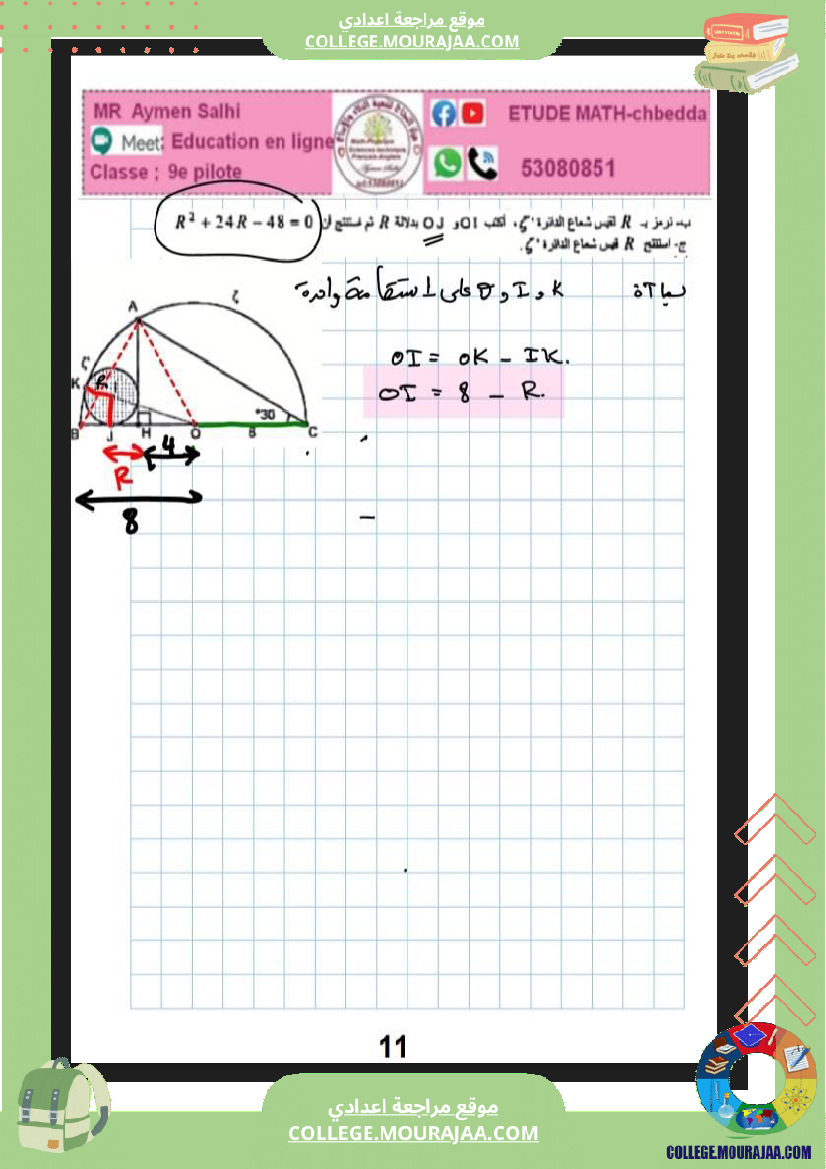 موقع مراجعة اعدادي
COLLEGE.MOURAJAA.COM
MR Aymen Salhi
Meet: Education en ligne
Classe ; 9e pilote
ETUDE MATH-chbedda
53080851
ب- نرمز بـ R لقيس شعاع الدائرة 'ζ، أكتب OI و OJ بدلالة R ثم استنتج أن R² + 24R − 48 = 0
ج- استنتج R قيس شعاع الدائرة 'ζ.
K و I و O على استقامة واحدة
OI = OK − IK.
OI = 8 − R.
ζ
A
ζ'
K
R
I
°30
B
J
H
O
8
C
4
R
8
11
موقع مراجعة اعدادي
COLLEGE.MOURAJAA.COM
COLLEGE.MOURAJAA.COM